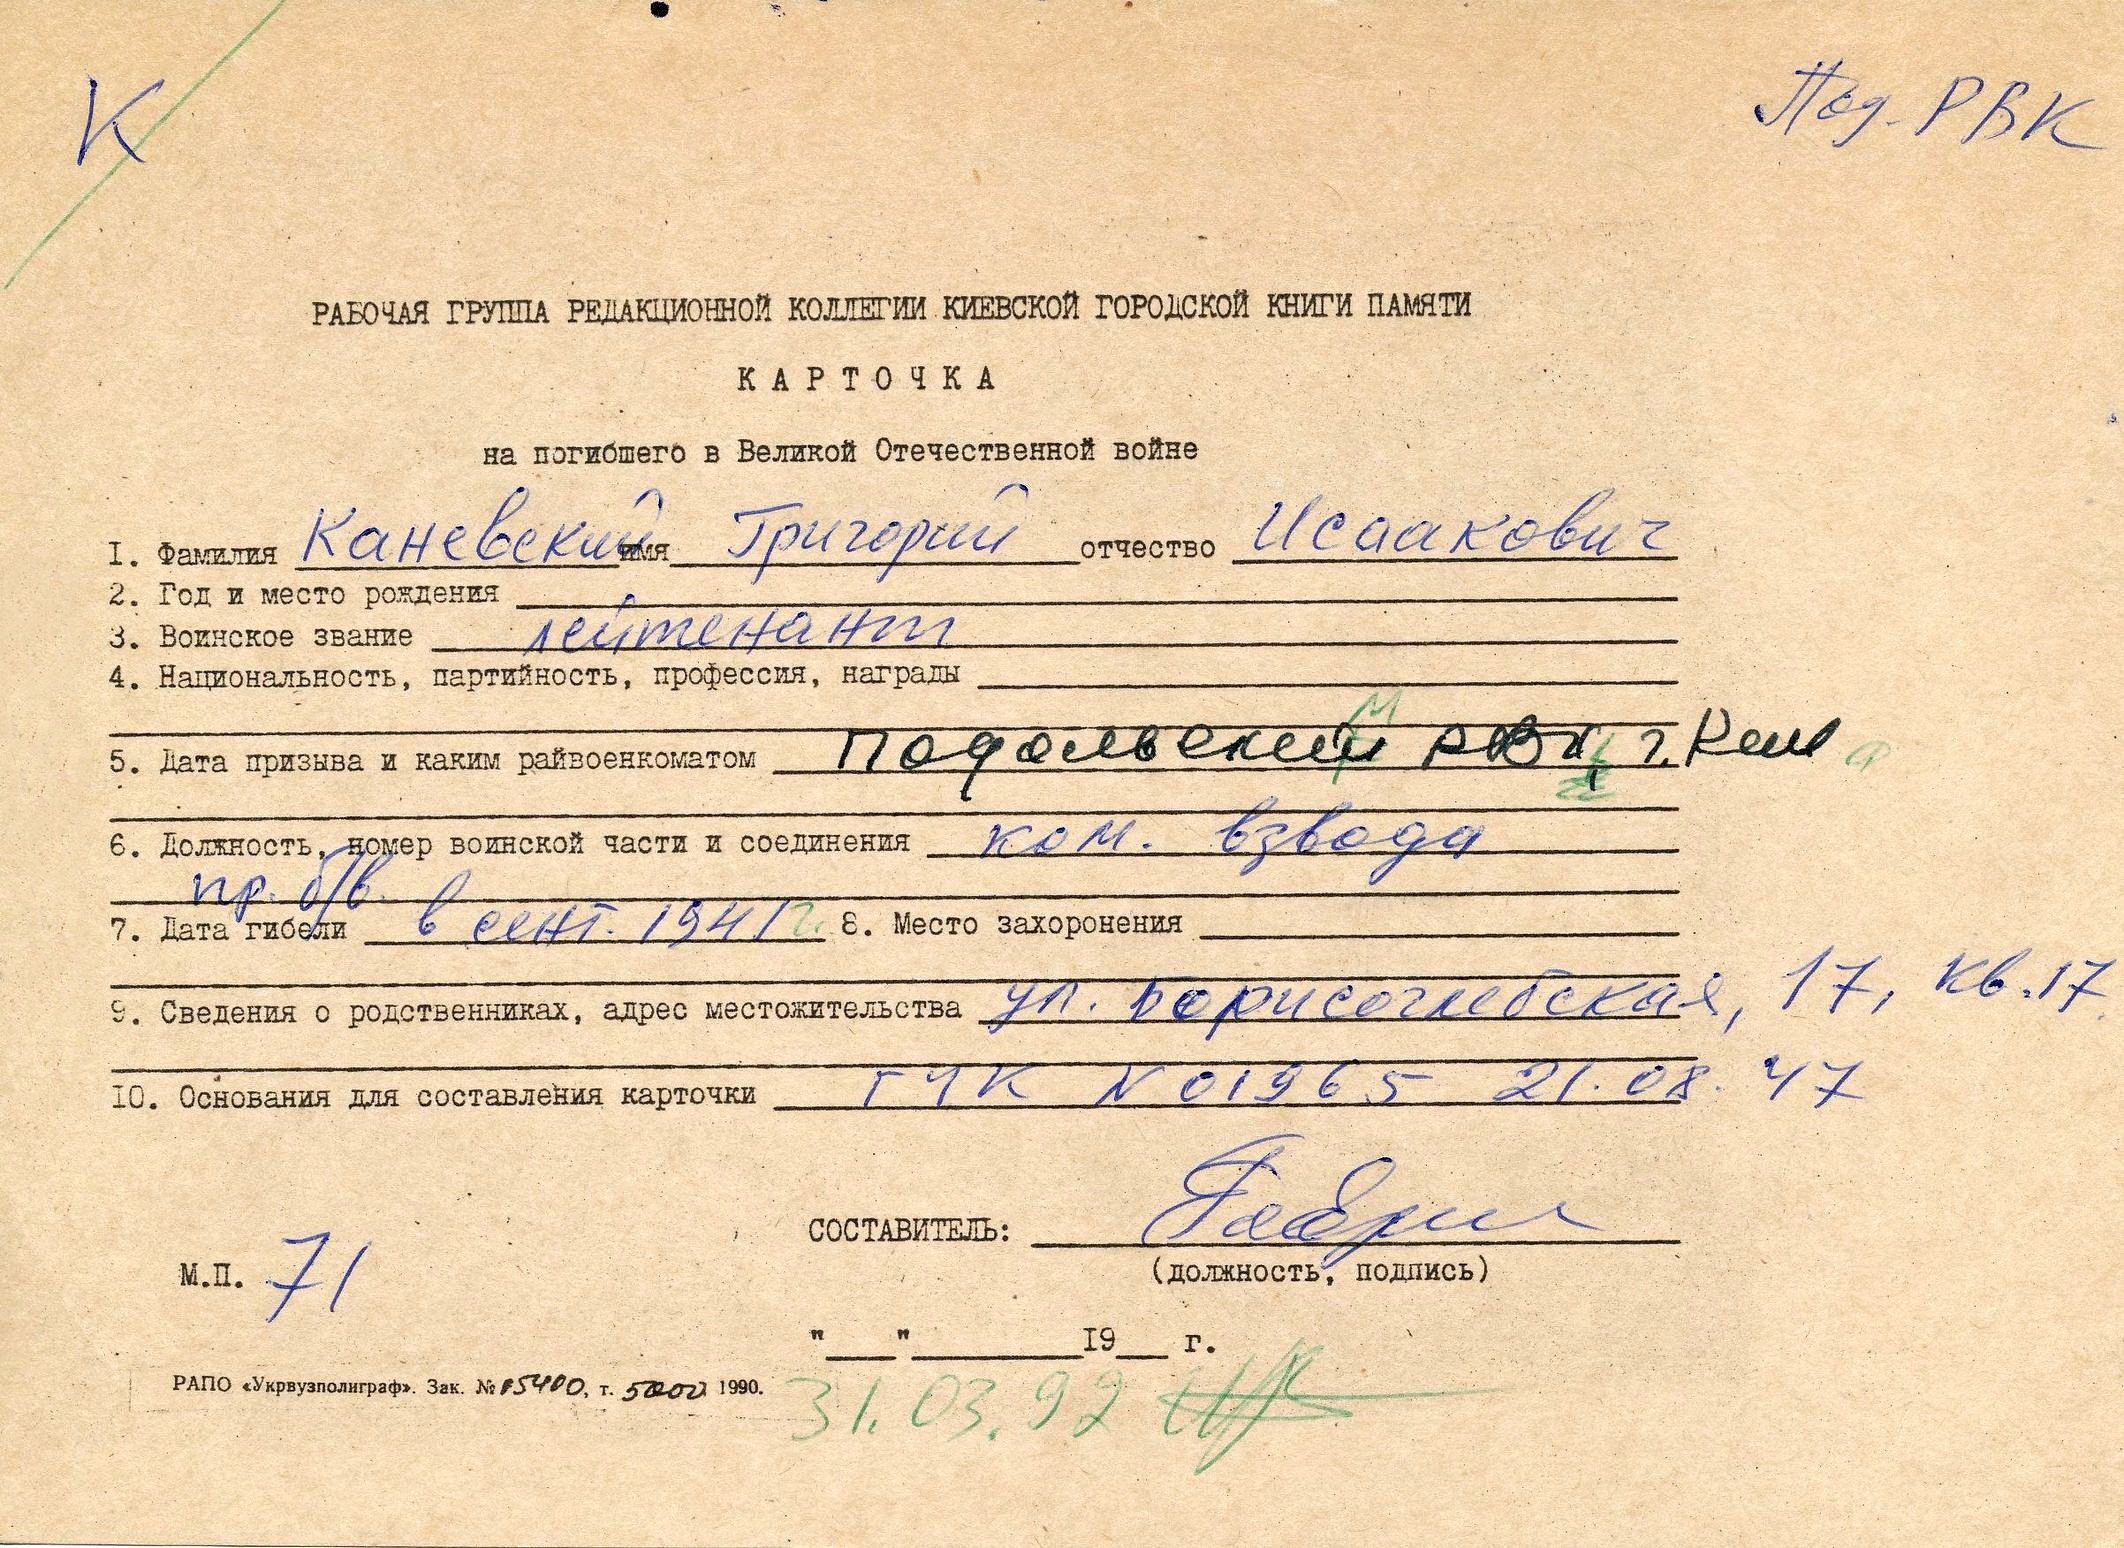 К
Под. РВК
РАБОЧАЯ ГРУППА РЕДАКЦИОННОЙ КОЛЛЕГИИ КИЕВСКОЙ ГОРОДСКОЙ КНИГИ ПАМЯТИ
КАРТОЧКА
на погибшего в Великой Отечественной войне
I. Фамилия Каневский имя Григорий отчество Исаакович
2. Год и место рождения
3. Воинское звание лейтенант
4. Национальность, партийность, профессия, награды
5. Дата призыва и каким райвоенкоматом Подольский РВК, г. Киев
6. Должность, номер воинской части и соединения ком. взвода
пр. б/в.
7. Дата гибели в сент. 1941 г. 8. Место захоронения
9. Сведения о родственниках, адрес местожительства ул. Борисоглебская, 17, кв. 17
10. Основания для составления карточки ГУК N 01965 21.08.47
СОСТАВИТЕЛЬ:
(должность, подпись)
М.П. 71
"___"________19___ г.
РАПО «Укрвузполиграф». Зак. № 05400, т. 5000 1990.
31.03.92